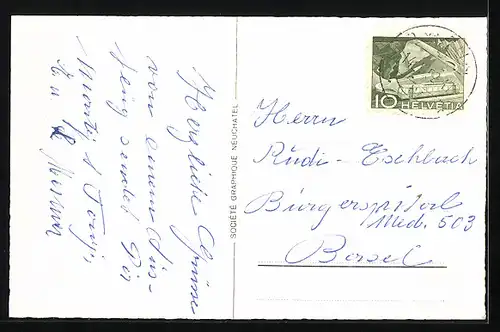 Herzliche Grüsse
von einem Aus-
flug sendet Dir
SOCIÉTÉ GRAPHIQUE NEUCHATEL
10 HELVETIA
Herrn
Rudi Eschbach
Bürgerspital
Med. 503
Basel